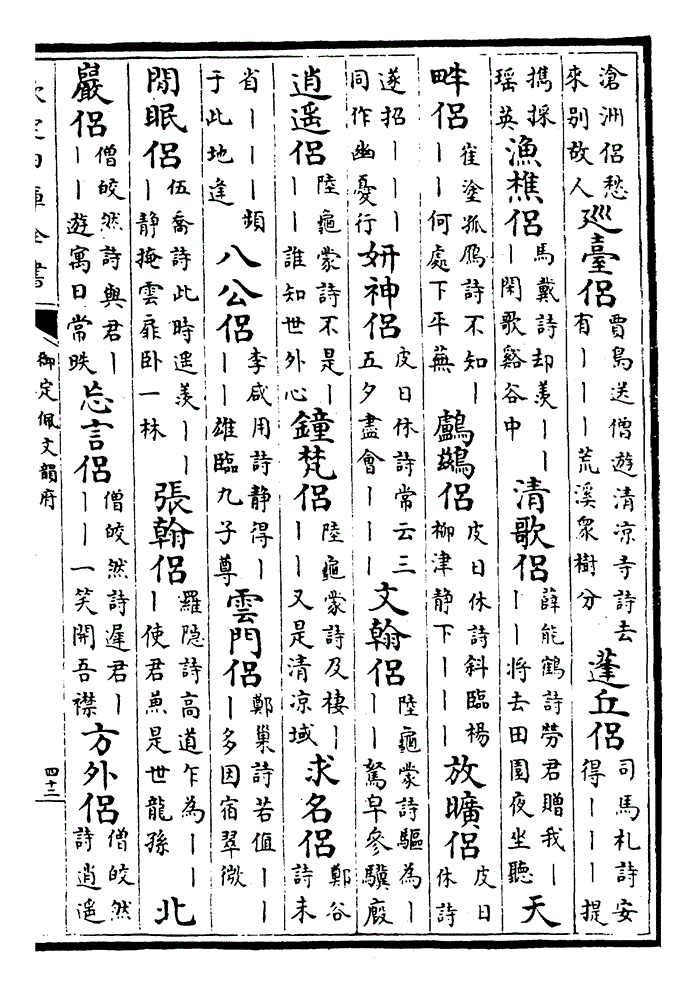 滄洲侶愁來別故人廵臺侶賈島送僧遊清凉寺詩去有｜｜｜荒溪衆樹分蓬丘侶司馬札詩安得｜｜｜提
擕採瑶英漁樵侶馬戴詩却羨｜｜｜閒歌谿谷中清歌侶薛能鶴詩勞君贈我｜｜｜將去田園夜坐聽天
畔侶崔塗孤鴈詩不知｜｜｜何處下平蕪鸕鷀侶皮日休詩斜臨楊柳津靜下｜｜｜放曠侶皮日休詩
遂招｜｜｜同作幽憂行妍神侶皮日休詩常云三五夕盡會｜｜｜文翰侶陸龜蒙詩驅為｜｜｜駑皁參驥廐
逍遥侶陸龜蒙詩不是｜｜｜誰知世外心鐘梵侶陸龜蒙詩及棲｜｜｜又是清凉域求名侶鄭谷詩未
省｜｜｜頻于此地逢八公侶李咸用詩静得｜｜｜雄臨九子尊雲門侶鄭巢詩若值｜｜｜多因宿翠微
閒眠侶伍喬詩此時遥羨｜｜｜静掩雲扉卧一林張翰侶羅隐詩高道乍為｜｜｜使君兼是世龍孫北
巖侶僧皎然詩與君｜｜｜遊寓日常昳忘言侶僧皎然詩遲君｜｜｜一笑開吾襟方外侶僧皎然詩逍遥
欽定四庫全書
御定佩文韻府